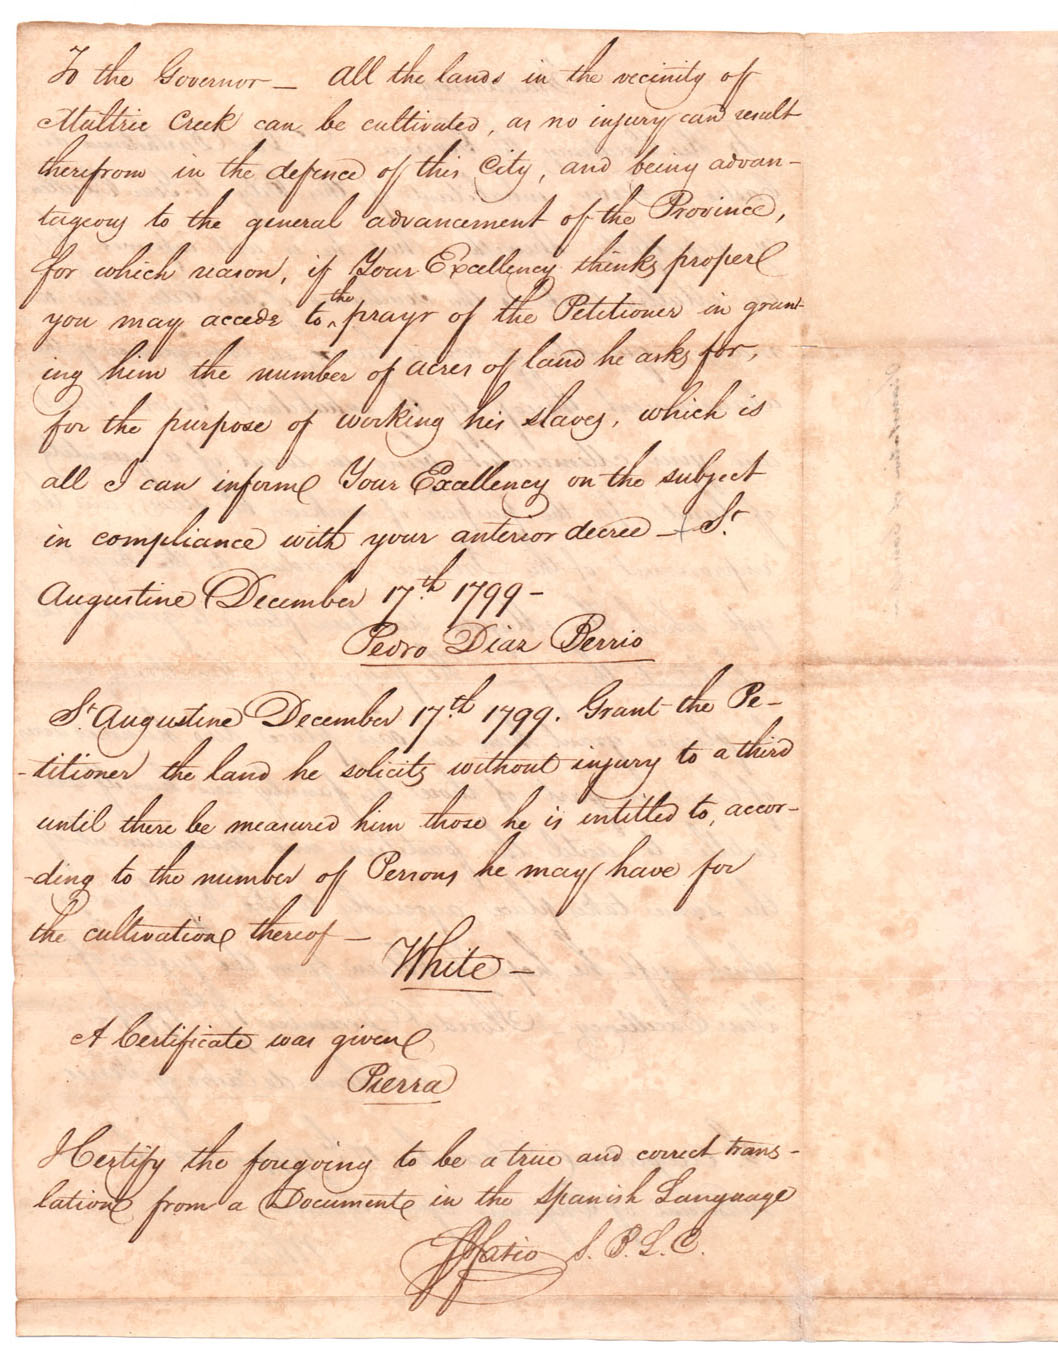 To the Governor — All the lands in the vicinity of
Multrie Creek can be cultivated, as no injury can result
therefrom in the defence of this City, and being advan-
tageous to the general advancement of the Province,
for which reason, if Your Excellency thinks proper
you may accede to the prayr of the Petitioner in grant-
ing him the number of acres of land he asks for,
for the purpose of working his slaves, which is
all I can inform Your Excellency on the subject
in compliance with your anterior decree — St.
Augustine December 17th. 1799 —
Pedro Diaz Berrio
St. Augustine December 17th. 1799. Grant the Pe-
-titioner the land he solicits without injury to a third
until there be measured him those he is intitled to, accor-
-ding to the number of Persons he may have for
the cultivation thereof —
White —
A Certificate was given
Pierra
I Certify the foregoing to be a true and correct trans-
lation from a Document in the Spanish Language
S. B. L. C.